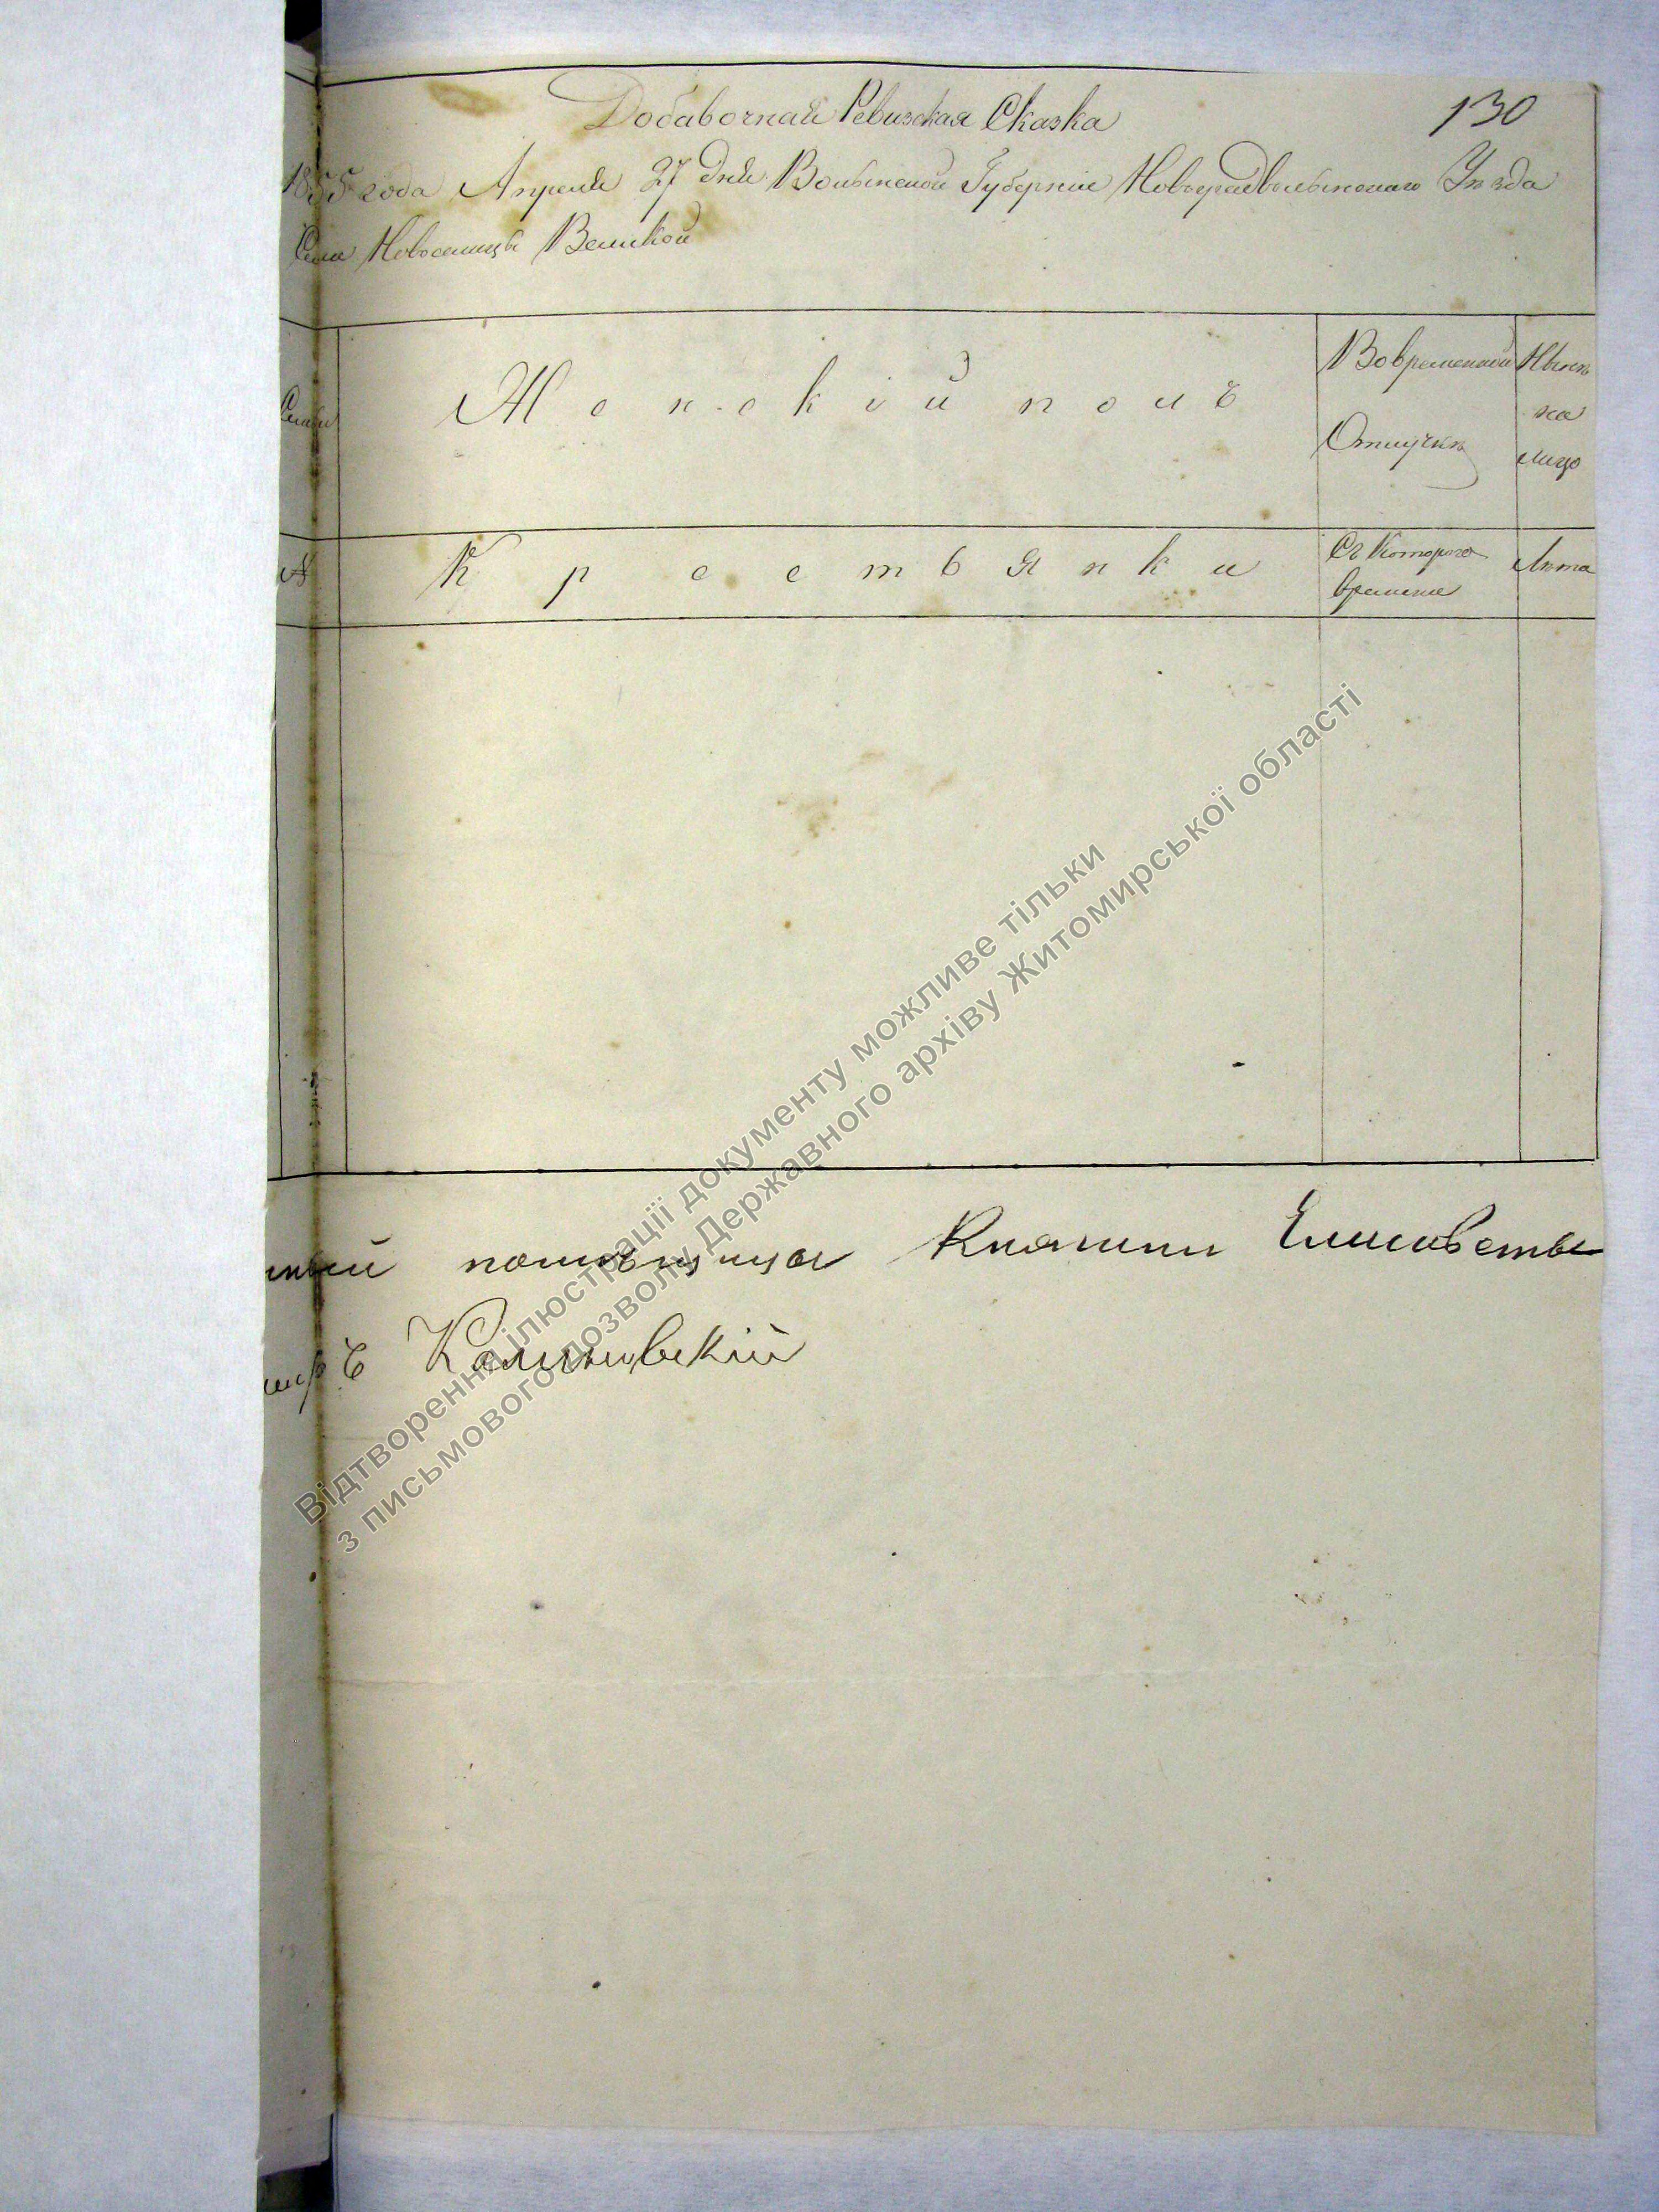 130
Добавочная Ревизская Сказка
1855 года Апреля 27 дня Волынской Губернии Новоградволынскаго Уезда
Села Новоселицы Великой
Семьи
Женскій полъ
Вовременной Отлучкѣ
Нынѣ на лицо
№
Крестьянки
Съ Котораго времени
Лѣта
помѣщица Княгини Елисаветы
Калиновскій
Відтворення ілюстрації документу можливе тільки
з письмового дозволу Державного архіву Житомирської області